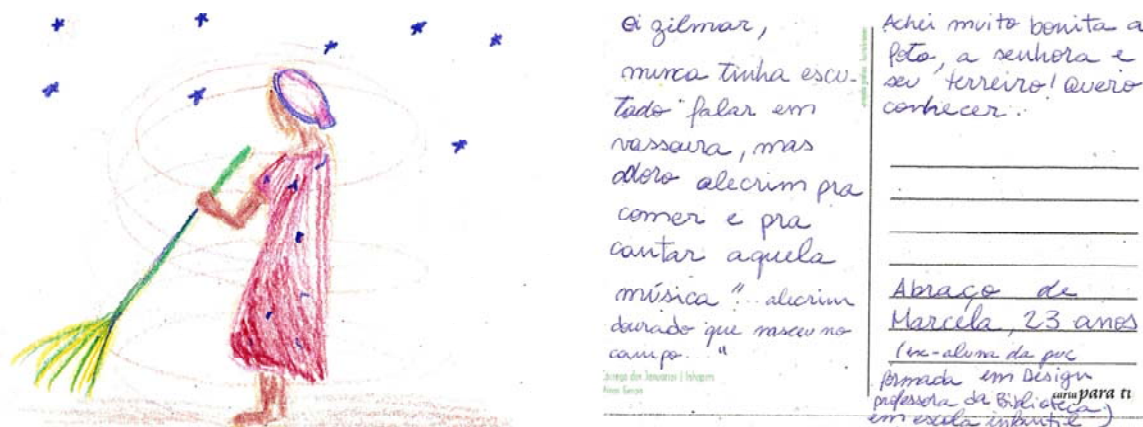 oi zilmar,
nunca tinha escu-
tado falar em
vassoura, mas
adoro alecrim pra
comer e pra
cantar aquela
música "alecrim
dourado que nasceu no
campo..."
Achei muito bonita a
foto, a senhora e
seu terreiro! Quero
conhecer.
Abraço de
Marcela, 23 anos
(ex-aluna da puc
formada em Design
professora da Biblioteca
em escola infantil)
carta para ti